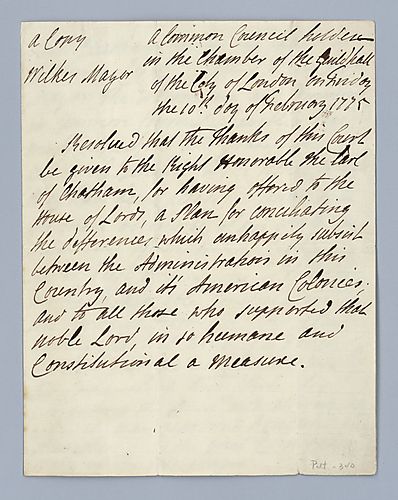 a Copy
Wilkes Mayor
a Common Council holden
in the Chamber of the Guildhall
of the City of London, on Friday
the 10th day of February 1775
Resolved that the Thanks of this Court
be given to the Right Honorable the Earl
of Chatham, for having offered to the
House of Lords, a Plan for conciliating
the differences which unhappily subsist
between the Administration in this
Country, and its American Colonies;
and to all those who supported that
noble Lord, in so humane and
Constitutional a Measure.
Pitt - 340